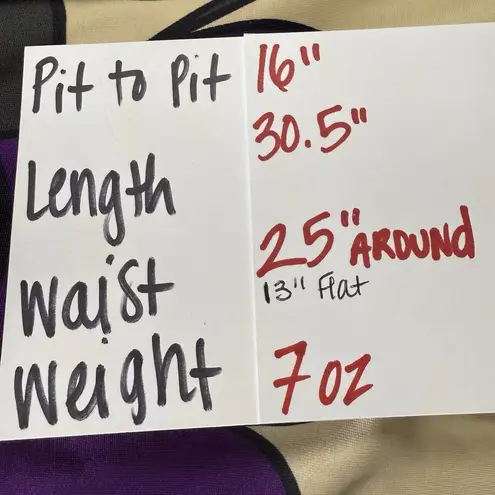 Pit to Pit 16"
30.5"
Length
25" AROUND
Waist 13" Flat
Weight 7 oz